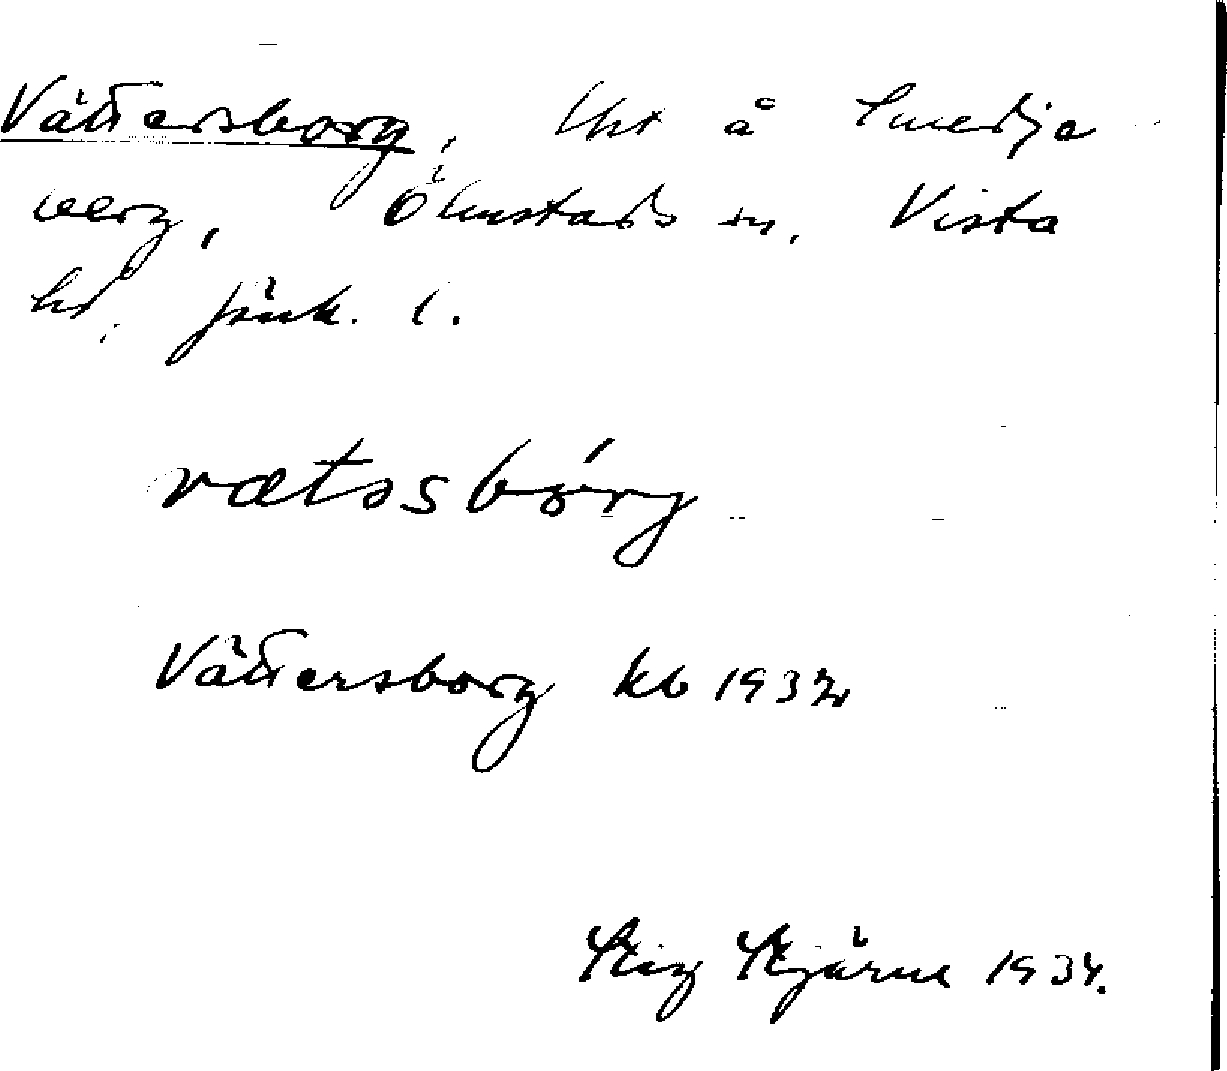 Vättersborg, lht å Smedja
berg, Ölmstads sn, Vista
hd, Jönk. l.
vætəsbórj
Vättersborg kb 1932
Stig Stjärne 1934.